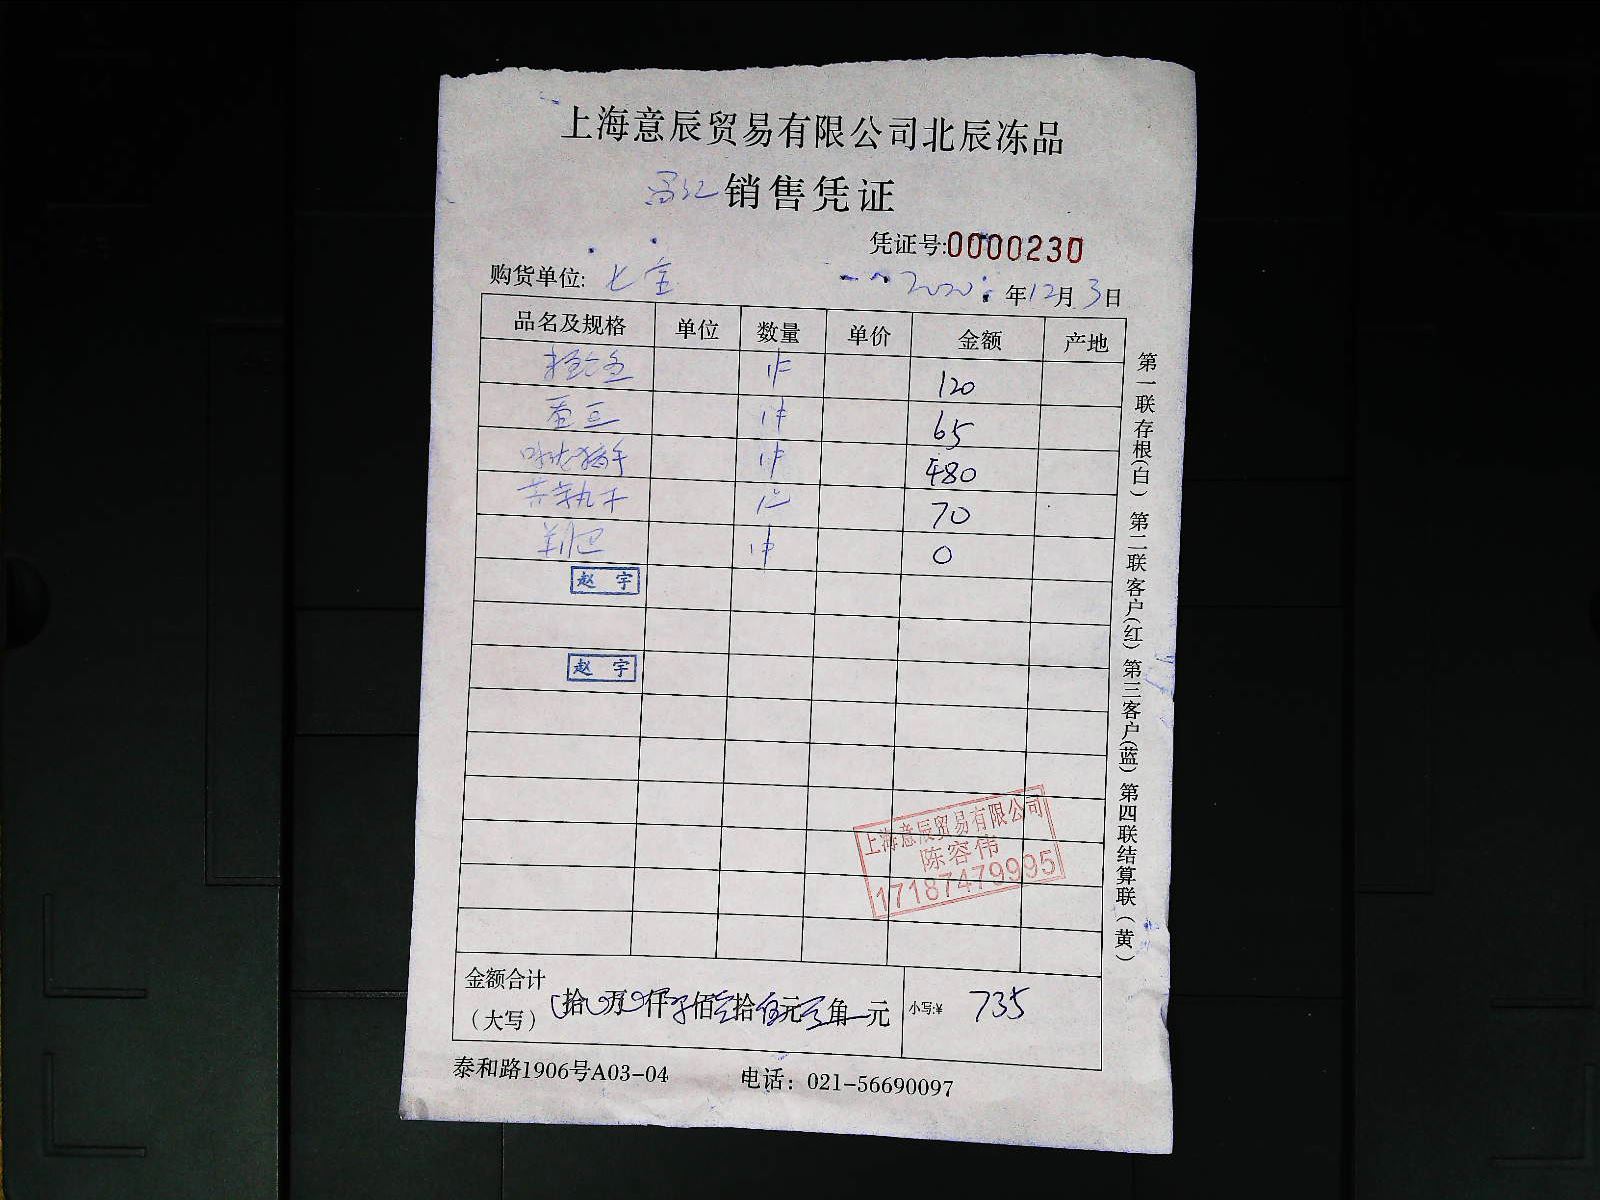 上海意辰贸易有限公司北辰冻品
销售凭证
凭证号:0000230
购货单位: 七宝
2020年12月3日
品名及规格 单位 数量 单价 金额 产地
1件 120
蚕豆 1件 65
1件 480
70
1件 0
赵 宇
赵 宇
上海意辰贸易有限公司
陈容伟
17187479995
金额合计
(大写) 拾 万 仟 佰 拾 元 角 元 小写:¥ 735
泰和路1906号A03-04 电话: 021-56690097
第一联存根(白) 第二联客户(红) 第三客户(蓝) 第四联结算联(黄)